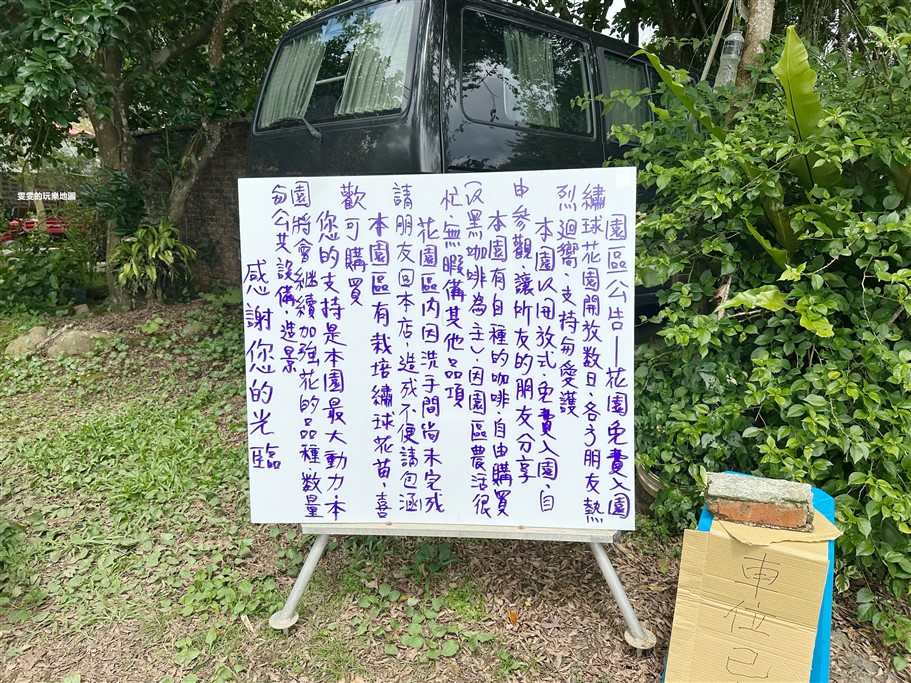 園區公告—花園免費入園
繡球花園開放数日,各方朋友熱
烈迴嚮,支持与愛護
本園以開放式,免費入園,自
由參觀,讓所友的朋友分享
本園有自種的咖啡,自由購買
(以黑咖啡為主),因園區農活很
忙,無暇備其他品項
花園區内因洗手間尚未完成
請朋友回本店,造成不便請包涵
本園區有栽培繡球花苗,喜
歡可購買
您的支持是本園最大動力,本
園將會継續加強花的品種数量
与公共設備,造景
感謝您的光臨
車位已
雯雯的玩樂地圖